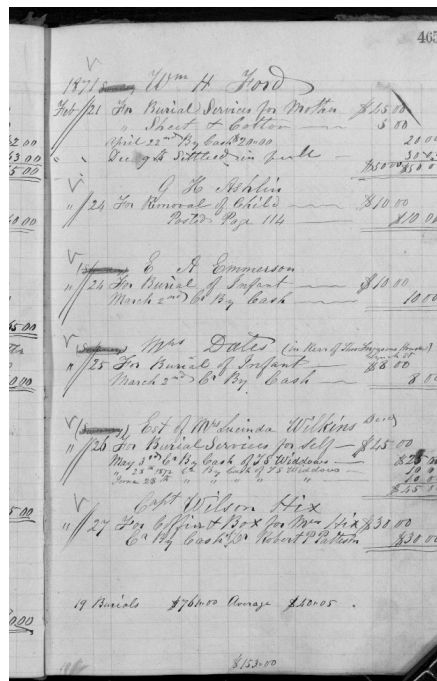 465
1871 Wm H. Ford
Feb 21 For Burial Services for Mother $45.00
" Sheet & Cotton 5 00
April 22nd By Cash $20.00 20.00
Settled in full 30.00
$50.00 $50.00
G H Ashlin
" 24 For Removal of Child $10.00
Posted Page 114 $10.00
E A Emmerson
" 24 For Burial of Infant $10.00
March 2nd Cr By Cash 10.00
Mrs Dates (in Rear of
" 25 For Burial of Infant $8 00
March 2nd Cr By Cash 8 00
Est of Mrs Lucinda Wilkins Decd
" 26 For Burial Services for self $45.00
May 3rd Cr By Cash of T S Widdows $25 00
" 28th 1872 Cr By Cash of T S Widdows 10 00
June 28th " " " " " 10 00
$45 0
Capt Wilson Hix
" 27 For Coffin & Box for Mrs Hix $30.00
Cr By Cash Pr Robert P Patteson $30.00
19 Burials $761.00 Average $40.05
$153.00